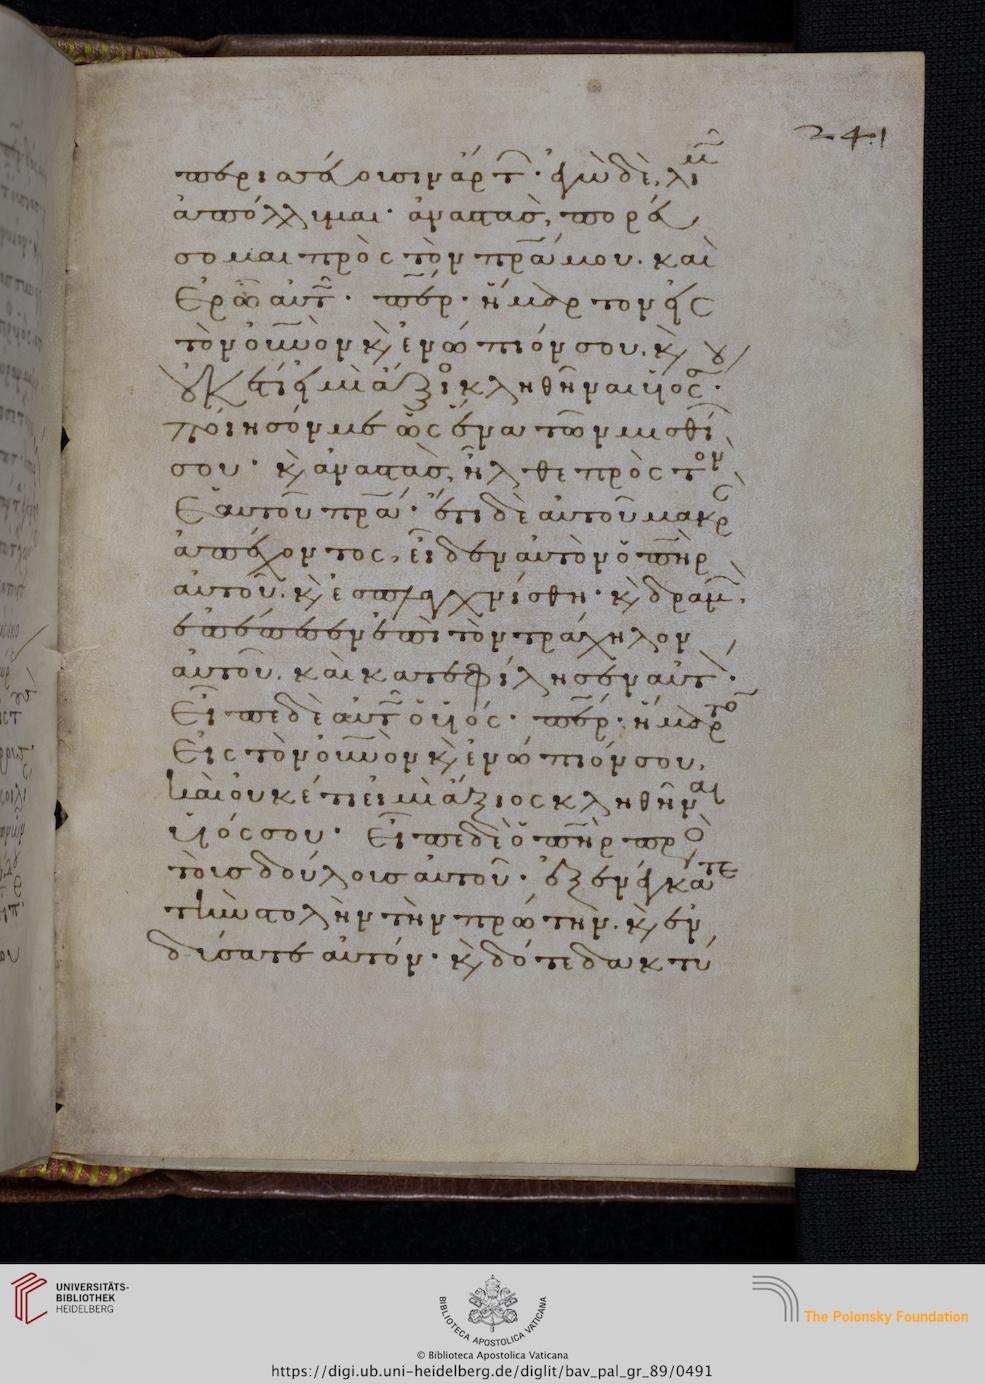 241
περισσεύουσιν ἄρτ· ἐγὼ δὲ, λιμ
ἀπόλλυμαι· ἀναστὰς, πορεύ
σομαι πρὸς τὸν πρα μου· καὶ
ἐρῶ αὐτ· περ· ἥμαρτον εἰς
τὸν οὐνὸν κ ἐνώπιόν σου. κ οὐ
κ ἔτι εἰμὶ ἄξιο κληθῆναι υἱός
ποίησόν με ὡς ἕνα τῶν μισθί
σου· κ ἀναστὰς, ἦλθε πρὸς τὸν
ἑαυτοῦ πρα· ἔτι δὲ αὐτοῦ μακρ
ἀπέχοντος, εἶδεν αὐτὸν ὁ πηρ
αὐτοῦ. κ ἐσπλαγχνίσθη· κ δραμ,
ἐπέπεσεν ἐπὶ τὸν τράχηλον
αὐτοῦ. καὶ κατεφίλησεν αὐτ·
εἶπε δὲ αὐτ ὁ υἱός· περ· ἥμαρτο
εἰς τὸν οὐνὸν κ ἐνώπιόν σου,
καὶ οὐκέτι εἰμὶ ἄξιος κληθῆναι
υἱός σου· εἶπε δὲ ὁ πηρ πρὸ
τοὺς δούλους αὐτοῦ· ἐξενέγκατε
τὴν στολὴν τὴν πρώτην. κ ἐν
δύσατε αὐτόν· κ δότε δακτύ
UNIVERSITÄTS-
BIBLIOTHEK
HEIDELBERG
BIBLIOTECA APOSTOLICA VATICANA
The Polonsky Foundation
© Biblioteca Apostolica Vaticana
https://digi.ub.uni-heidelberg.de/diglit/bav_pal_gr_89/0491